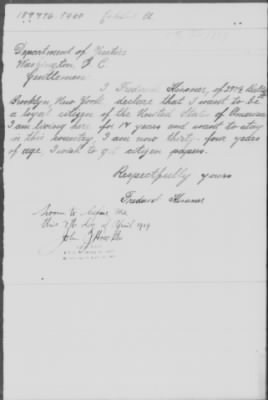 Department of Justice
Washington D C.
Gentlemen
I Frederick
Brooklyn, New York declare that I want to be
a loyal citizen of the United States of America
I am living here for years and want to stay
in this country. I am now thirty-four years
of age, I wish to get citizen papers.
Respectfully yours
Frederick
Sworn to before me
this day of April 1919
John